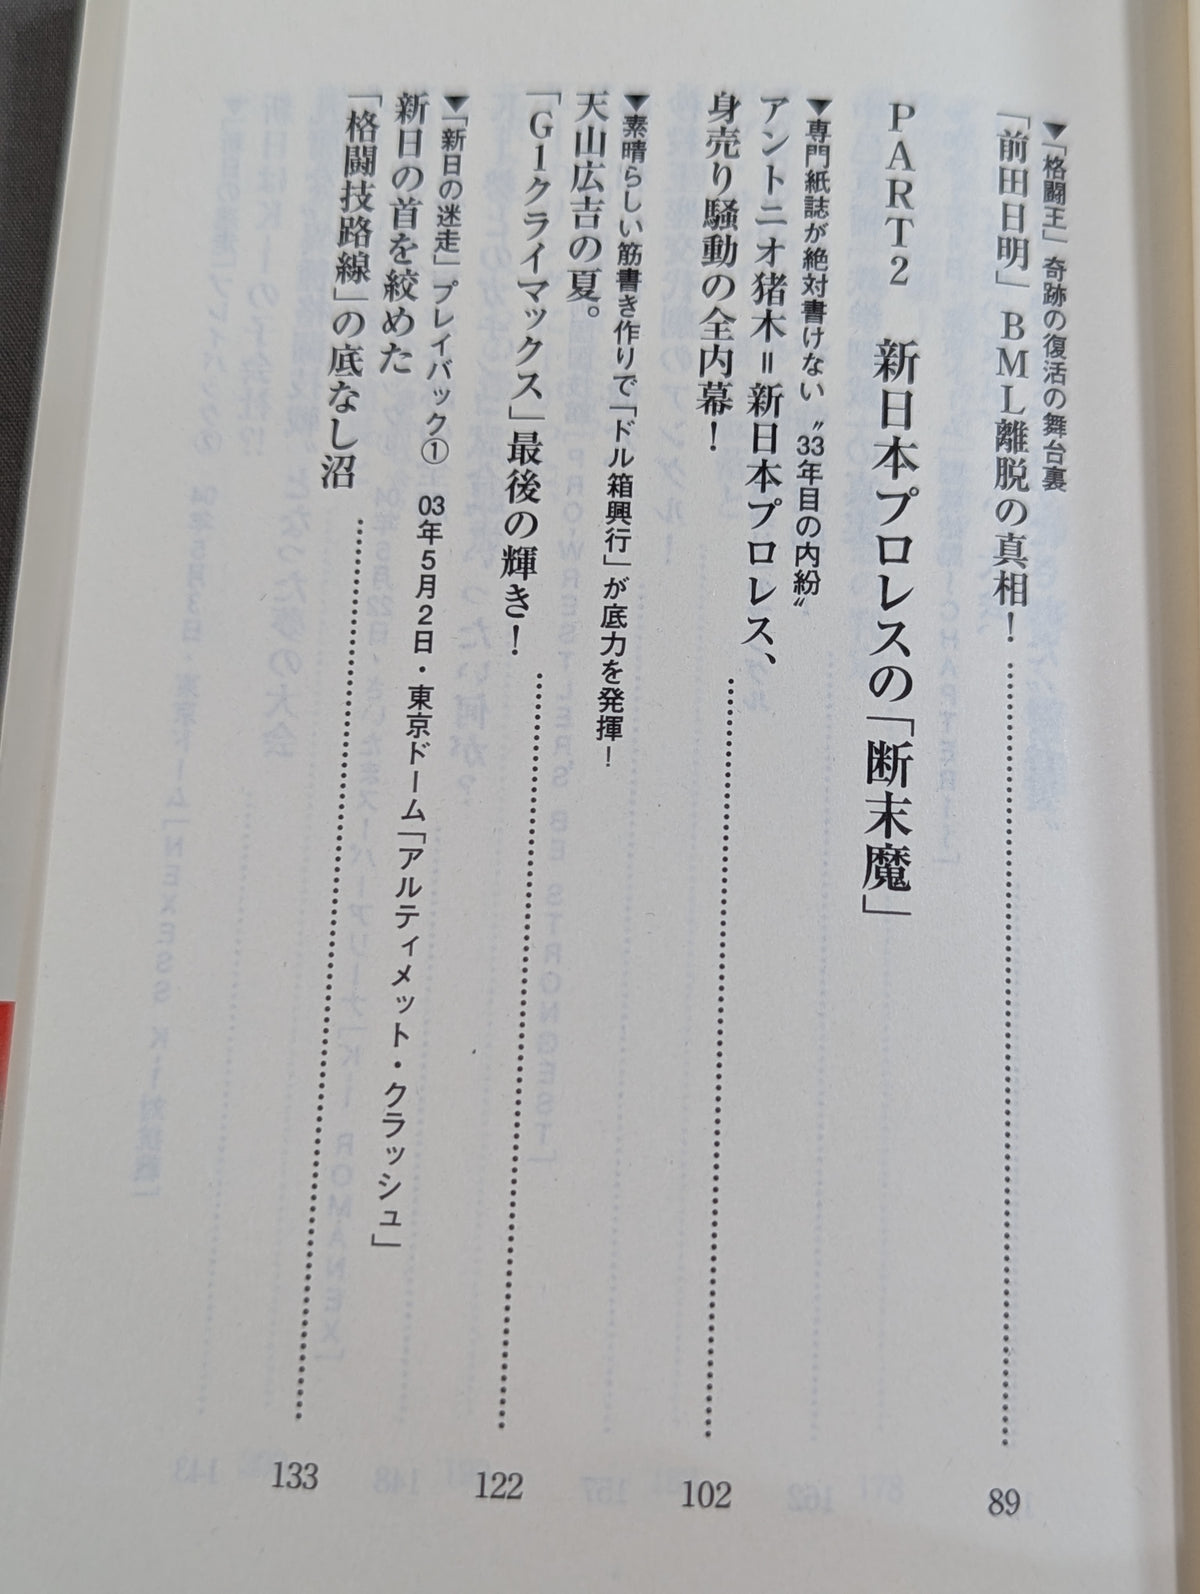 ▼「格闘王」奇跡の復活の舞台裏
「前田日明」BML離脱の真相！ 89
PART2 新日本プロレスの「断末魔」
▼専門紙誌が絶対書けない〝33年目の内紛〟
アントニオ猪木＝新日本プロレス、
身売り騒動の全内幕！ 102
▼素晴らしい筋書き作りで「ドル箱興行」が底力を発揮！
天山広吉の夏。
「G1クライマックス」最後の輝き！ 122
▼「新日の迷走」プレイバック① 03年5月2日・東京ドーム「アルティメット・クラッシュ」
新日の首を絞めた
「格闘技路線」の底なし沼 133